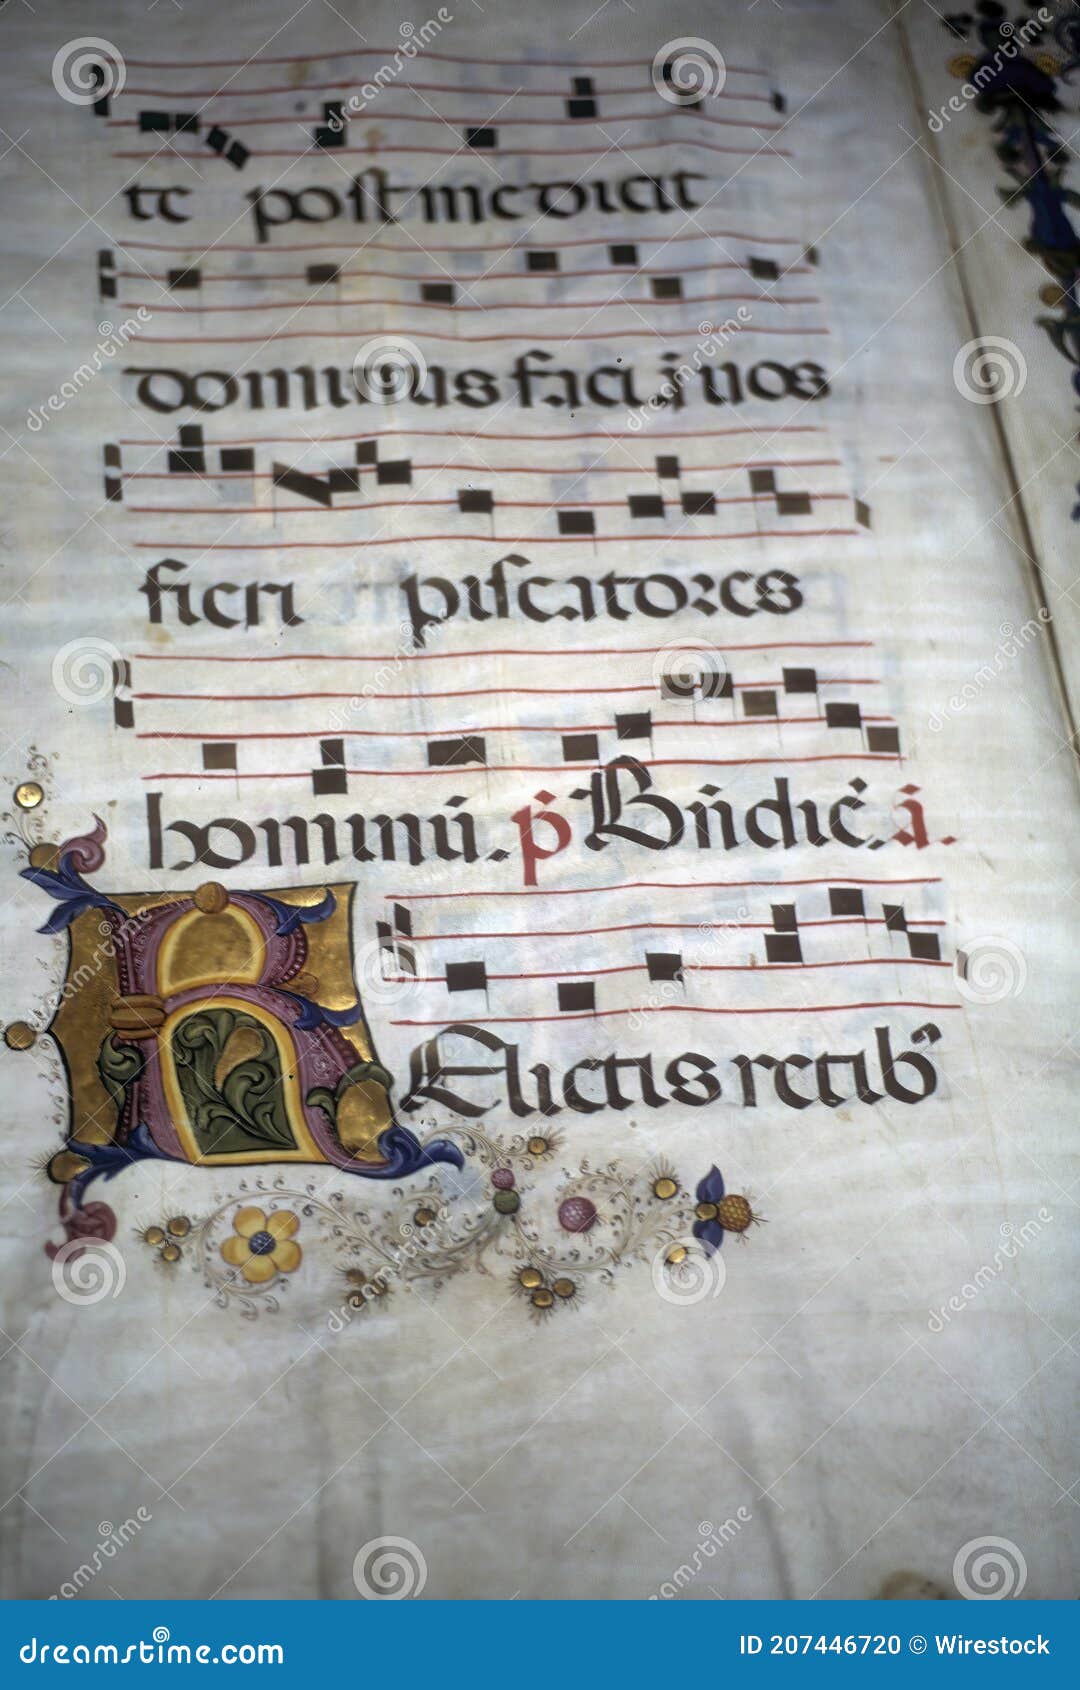 te post me dicit
dominus faciam uos
fieri piscatores
hominū. p̄ Bn̄dic̄. ā.
RElictis retib᾽
dreamstime.com
ID 207446720 © Wirestock